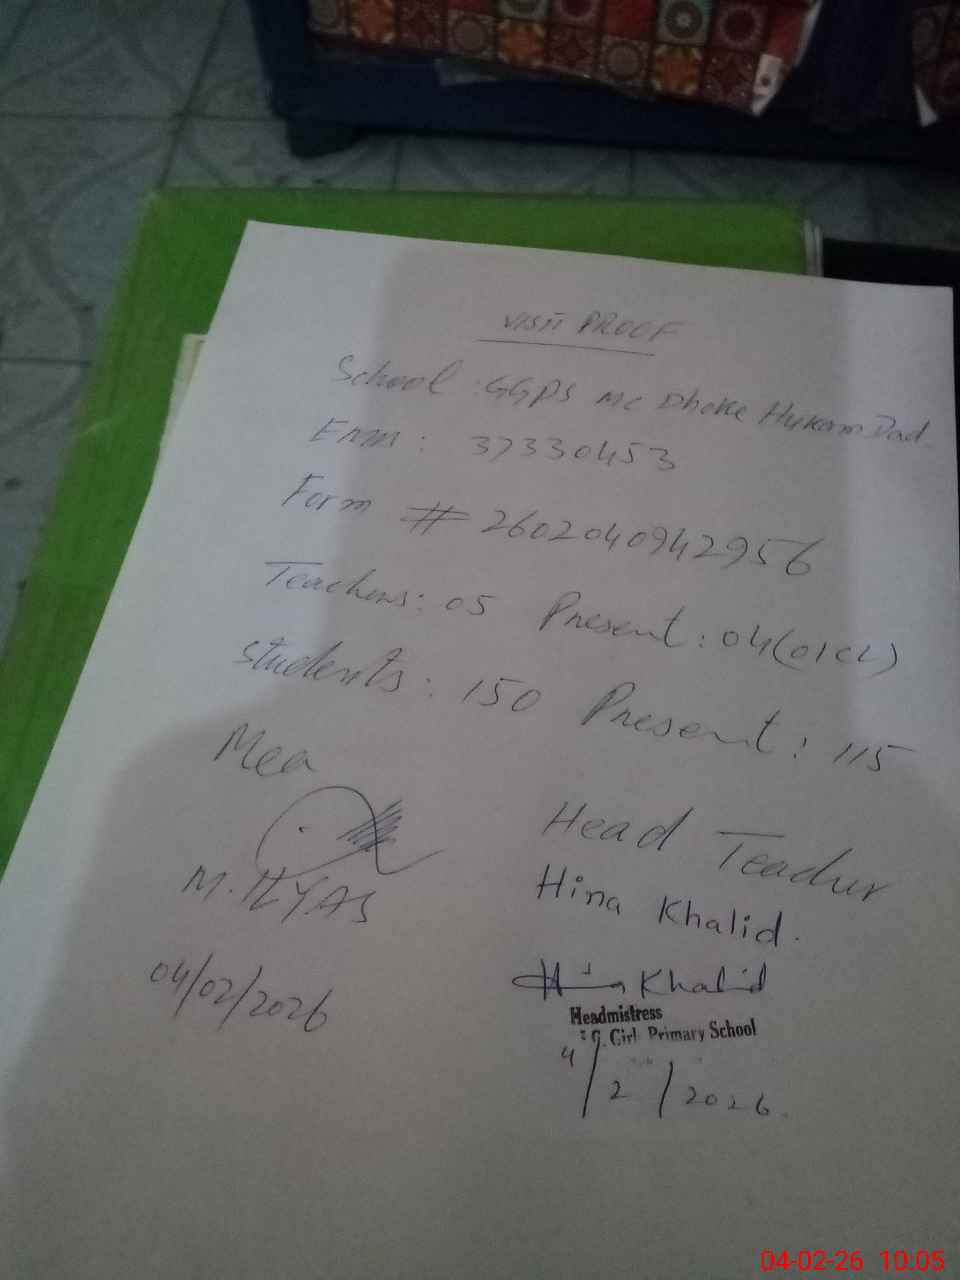 VISIT PROOF
School : GGPS MC Dhoke Hukam Dad
Emis : 37330453
Form # 2602040942956
Teachers : 05 Present : 04 (01 CL)
Students : 150 Present : 115
Mea
M. ILYAS
04/02/2026
Head Teacher
Hina Khalid.
Hina Khalid
Headmistress
G. Girl Primary School
4/2/2026.
04-02-26 10:05